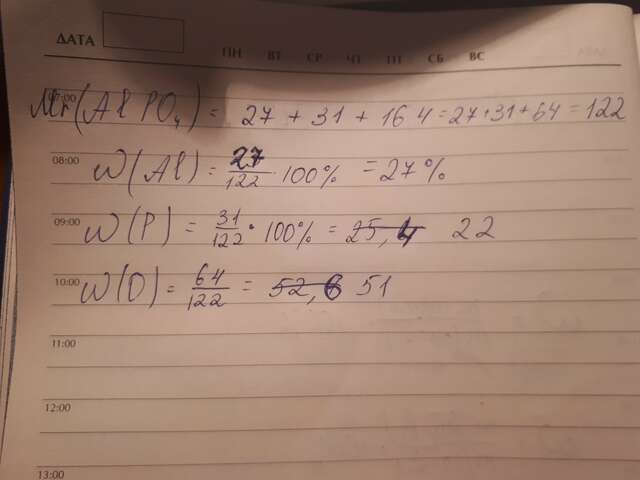 ДАТА
ПН ВТ СР ЧТ ПТ СБ ВС
07:00 Mr(AlPO₄) = 27 + 31 + 16 4 = 27+31+64 = 122
08:00 W(Al) = 27/122 · 100% = 27%
09:00 W(P) = 31/122 · 100% = 25,4 22
10:00 W(O) = 64/122 = 52,6 51
11:00
12:00
13:00